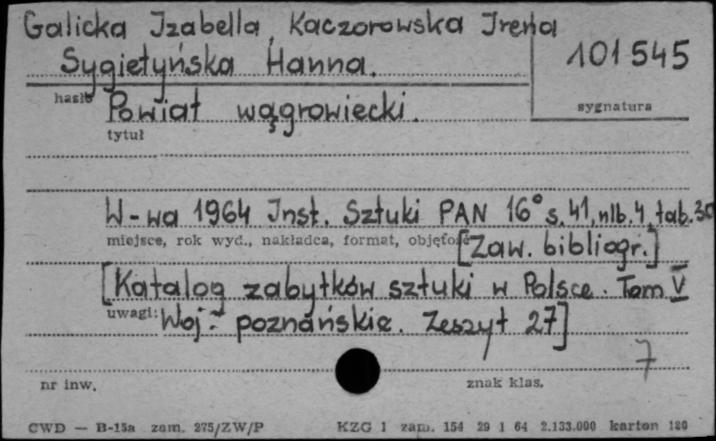 Galicka Izabella, Kaczorowska Irena
Sygietyńska Hanna.
101545
hasło
Powiat wągrowiecki.
sygnatura
tytuł
W-wa 1964 Inst. Sztuki PAN 16° s. 41, nlb. 4, tab. 30
miejsce, rok wyd., nakładca, format, objętość
[Zaw. bibliogr.]
[Katalog zabytków sztuki w Polsce. Tom V
uwagi:
Woj. poznańskie. Zeszyt 27]
7
nr inw.
znak klas.
CWD — B-15a zam. 275/ZW/P
KZG 1 zam. 154 29 1 64 2.133.000 karton 180